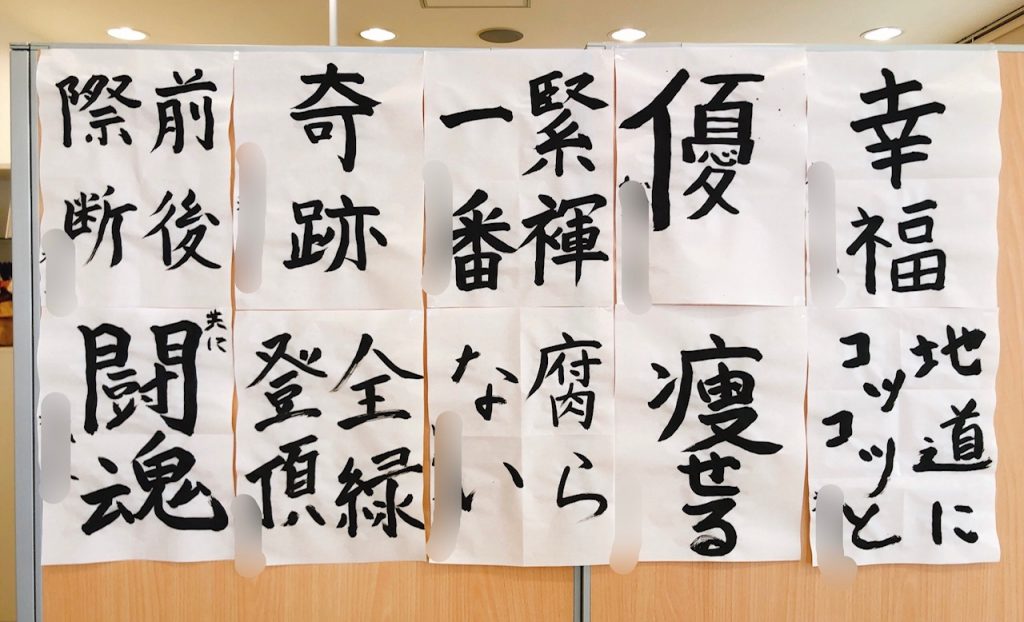 幸福
優
緊褌
一番
奇跡
前後
際断
地道に
コツコツと
痩せる
腐ら
ない
全緑
登頂
共に
闘魂